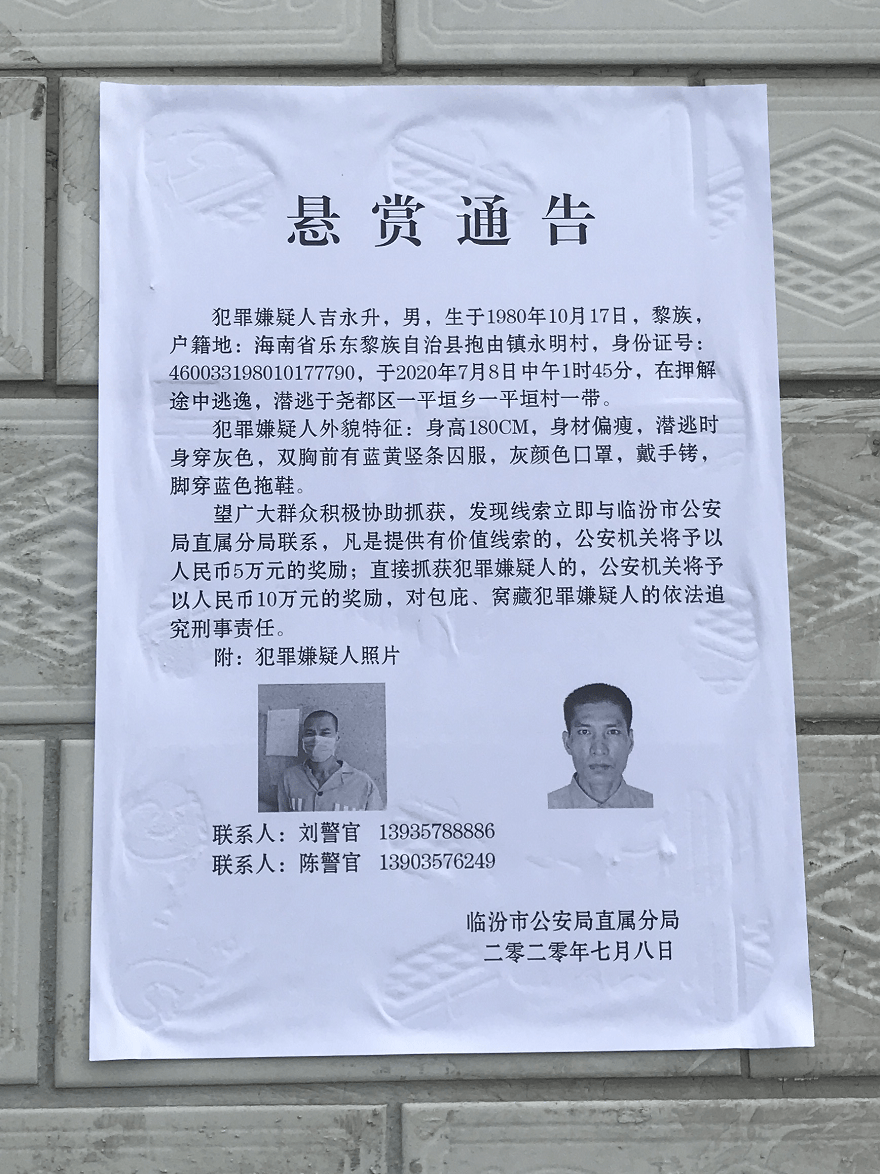 悬赏通告
犯罪嫌疑人吉永升，男，生于1980年10月17日，黎族，
户籍地：海南省乐东黎族自治县抱由镇永明村，身份证号：
460033198010177790，于2020年7月8日中午1时45分，在押解
途中逃逸，潜逃于尧都区一平垣乡一平垣村一带。
犯罪嫌疑人外貌特征：身高180CM，身材偏瘦，潜逃时
身穿灰色，双胸前有蓝黄竖条囚服，灰颜色口罩，戴手铐，
脚穿蓝色拖鞋。
望广大群众积极协助抓获，发现线索立即与临汾市公安
局直属分局联系，凡是提供有价值线索的，公安机关将予以
人民币5万元的奖励；直接抓获犯罪嫌疑人的，公安机关将予
以人民币10万元的奖励，对包庇、窝藏犯罪嫌疑人的依法追
究刑事责任。
附：犯罪嫌疑人照片
联系人：刘警官 13935788886
联系人：陈警官 13903576249
临汾市公安局直属分局
二零二零年七月八日